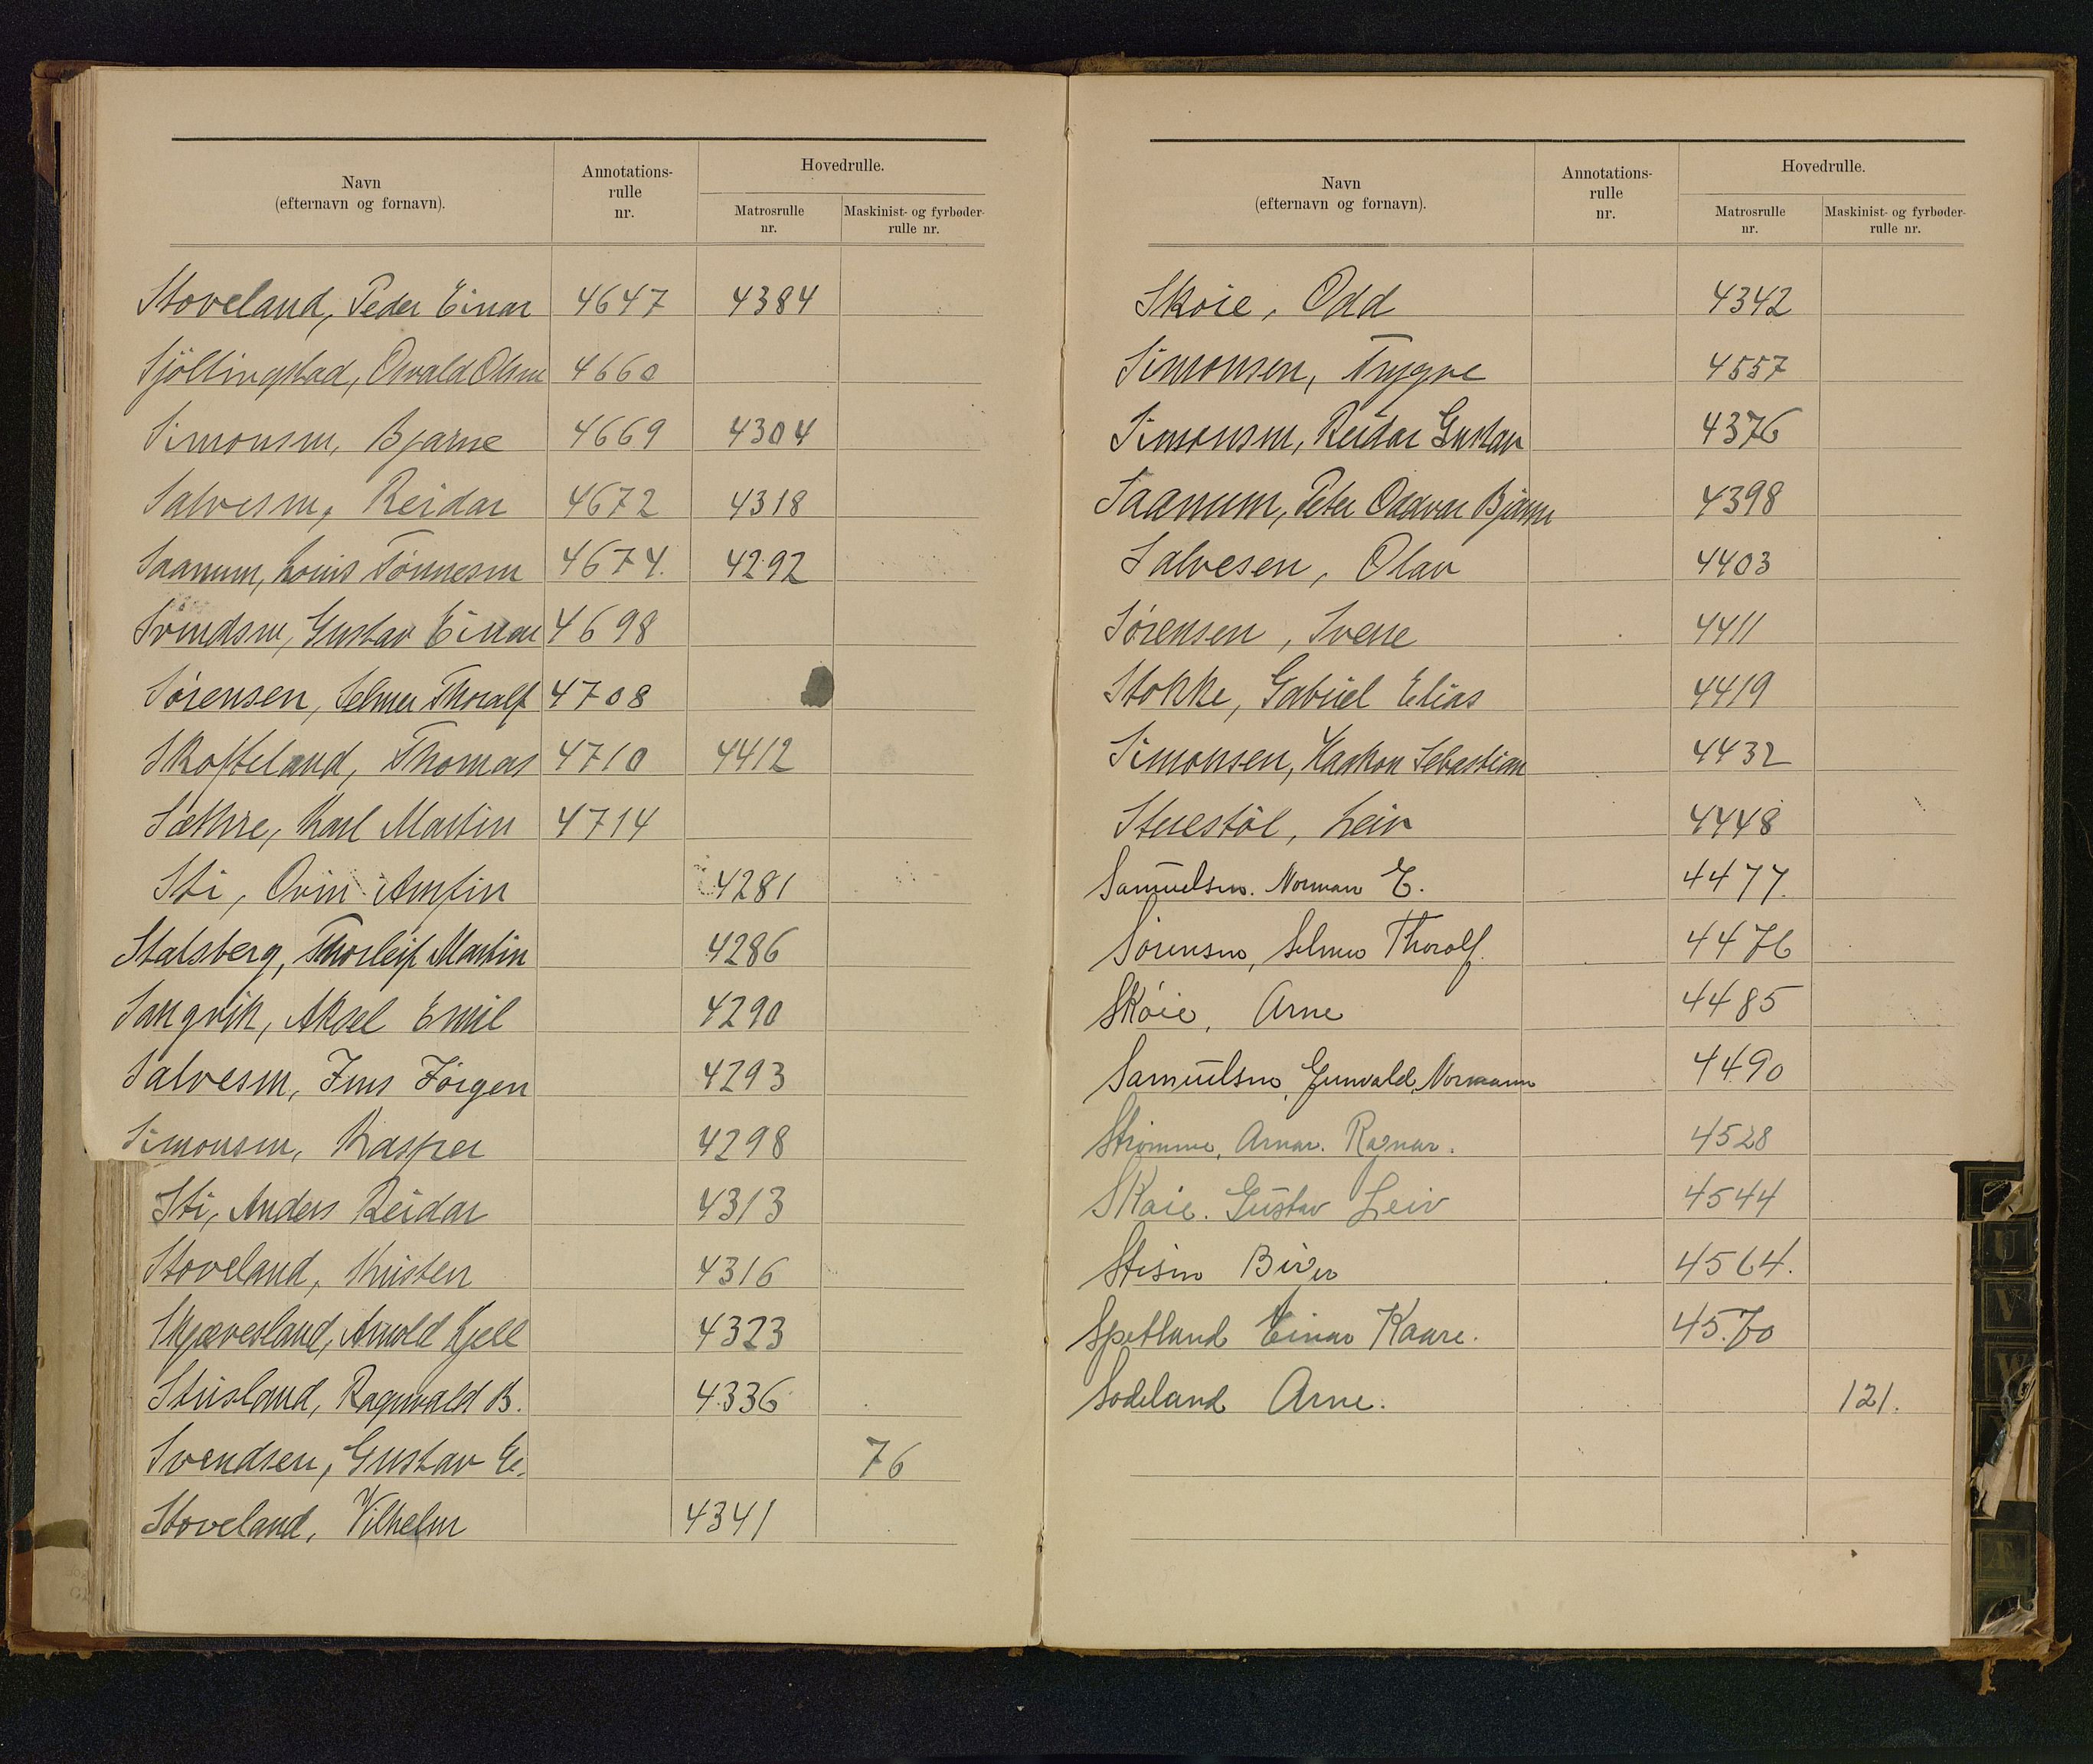 Navn
(efternavn og fornavn).
Annotations-
rulle
nr.
Hovedrulle.
Matrosrulle
nr.
Maskinist- og fyrbøder-
rulle nr.
Stoveland, Peder Einar 4647 4384
Sjöllingstad, Osvald Olsen 4660
Simonsen, Bjarne 4669 4304
Salvesen, Reidar 4672 4318
Saanum, Louis Tönnesen 4674. 4292
Svendsen, Gustav Einar 4698
Sörensen, Selmer Thoralf 4708
Skofteland, Thomas 4710 4412
Sæthre, Karl Martin 4714
Sti, Ovin Arnfin 4281
Stalsberg, Thorleif Martin 4286
Sangvik, Aksel Emil 4290
Salvesen, Jens Jörgen 4293
Simonsen, Kasper 4298
Sti, Anders Reidar 4313
Stoveland, Kristen 4316
Skjævesland, Arnold Kjell 4323
Stusland, Ragnvald B. 4336
Svendsen, Gustav E. 76
Stoveland, Vilhelm 4341
Navn
(efternavn og fornavn).
Annotations-
rulle
nr.
Hovedrulle.
Matrosrulle
nr.
Maskinist- og fyrbøder-
rulle nr.
Skoie, Odd 4342
Simonsen, Trygve 4557
Simonsen, Reidar Gustav 4376
Saanum, Peter Oddvar Bjarne 4398
Salvesen, Olav 4403
Sörensen, Sverre 4411
Stokke, Gabriel Elias 4419
Simonsen, Haakon Sebastian 4432
Stuestöl, Leiv 4448
Samuelsen. Norman E. 4477.
Sörensen, Selmer Thoralf. 4476
Skóie, Arne 4485
Samuelsen, Gunvald Normann 4490
Strömme, Arnar. Ragnar. 4528
Skoie. Gustav Leiv 4544
4564.
Spetland Einar Kaare. 4570
Sodeland Arne. 121.
U
V
W